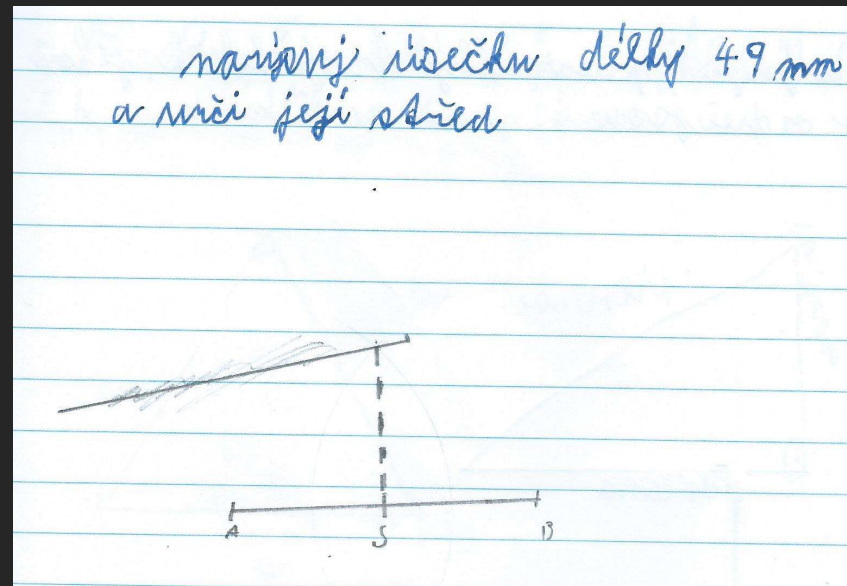 narýsuj úsečku délky 49 mm
a urči její střed
A S B